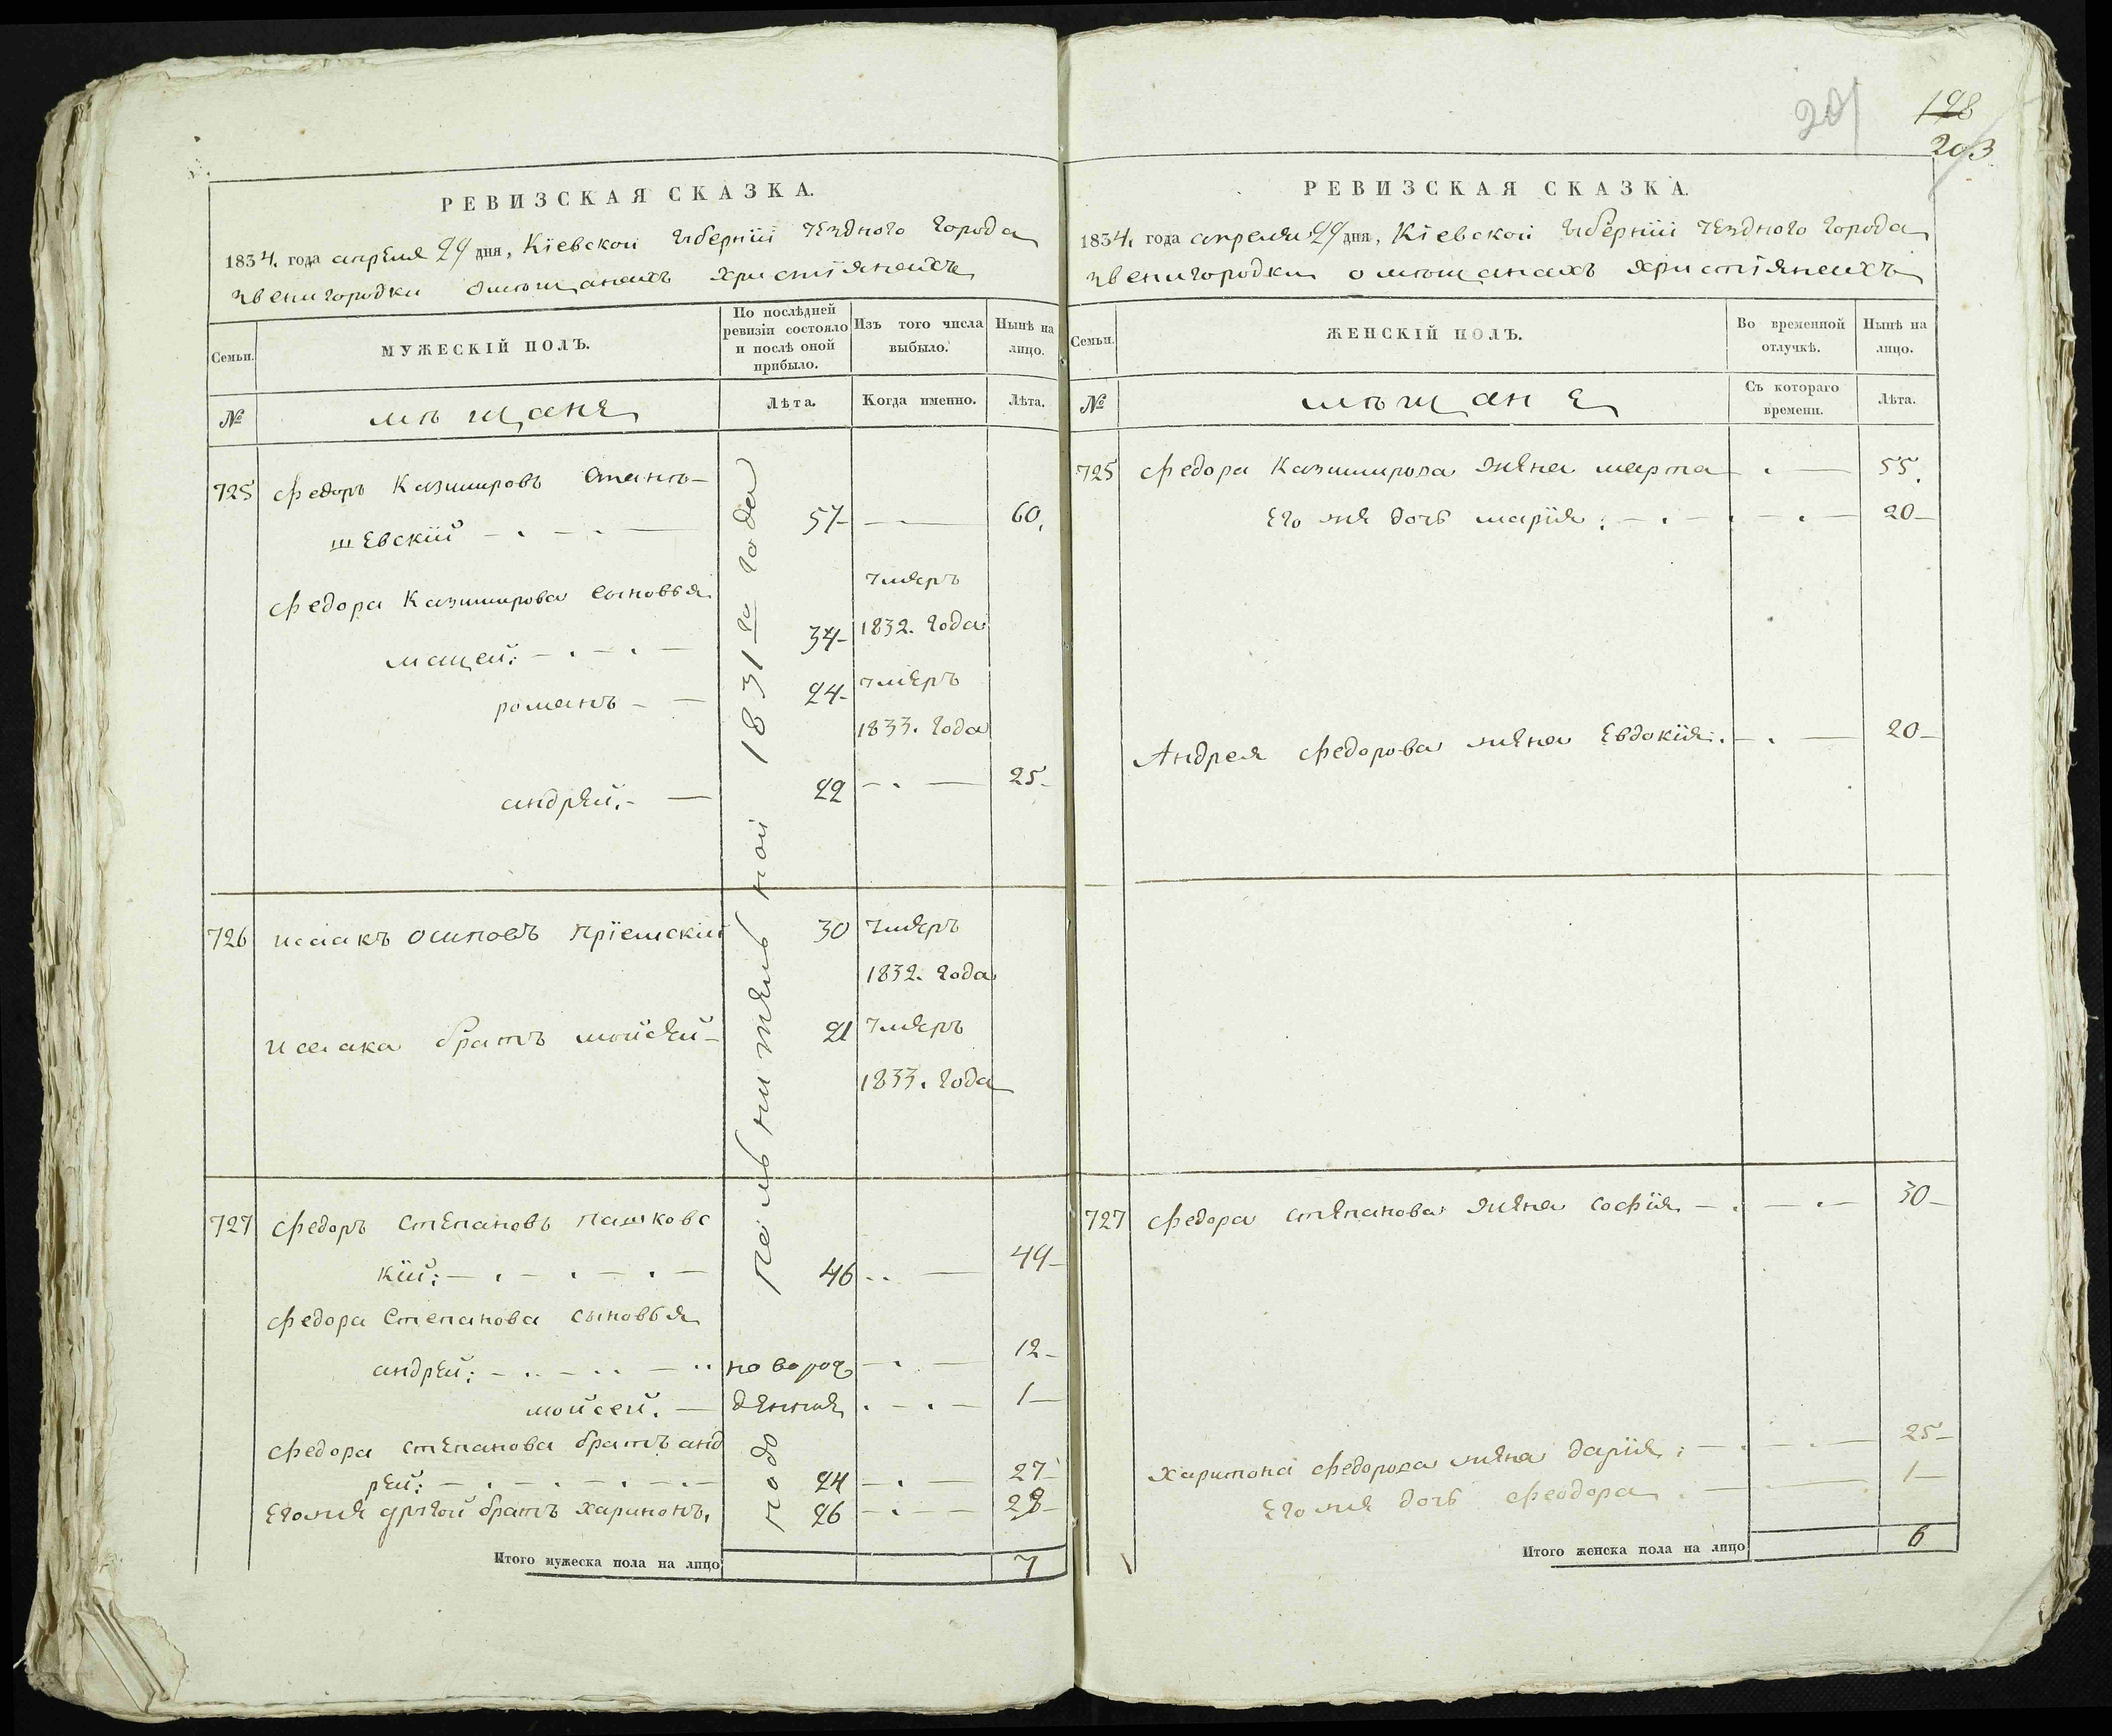 РЕВИЗСКАЯ СКАЗКА.
1834. года апреля 29 дня, Кіевской губерніи уезднаго города
звенигородки о мѣщанахъ христіянахъ
Семьи.
МУЖЕСКІЙ ПОЛЪ.
По послѣдней ревизіи состояло и послѣ оной прибыло.
Изъ того числа выбыло.
Нынѣ на лицо.
№
мѣщане
Лѣта.
Когда именно.
Лѣта.
по дополнительной 1831го года
725 федоръ Казимировъ
шевскій 57 60.
федора Казимирова сыновья
умеръ
мацей: 34 1832. года
романъ 24 умеръ
1833. года
андрей. 22 25
726 исаакъ осиповъ 30 умеръ
1832. года
исаака братъ мойсей 21 умеръ
1833. года
727 федоръ степановъ пашковс
кій: 46 49
федора степанова сыновья
андрей: новорож 12
мойсей. денныя 1
федора степанова братъ анд
рей: 24 27
егожъ другой братъ харитонъ, 26 28
Итого мужеска пола на лицо 7
201
198
203
РЕВИЗСКАЯ СКАЗКА.
1834. года апреля 29 дня, Кіевской губерніи уезднаго города
звенигородки о мѣщанахъ христіянахъ
Семьи.
ЖЕНСКІЙ ПОЛЪ.
Во временной отлучкѣ.
Нынѣ на лицо.
№
мѣщане
Съ котораго времени.
Лѣта.
725 федора Казимирова жена марта 55.
его же дочь марія: 20
Андрея федорова жена Евдокія: 20
727 федора степанова жена софія 30
харитона федорова жена дарія: 25
его же дочь феодора. 1
Итого женска пола на лицо 6